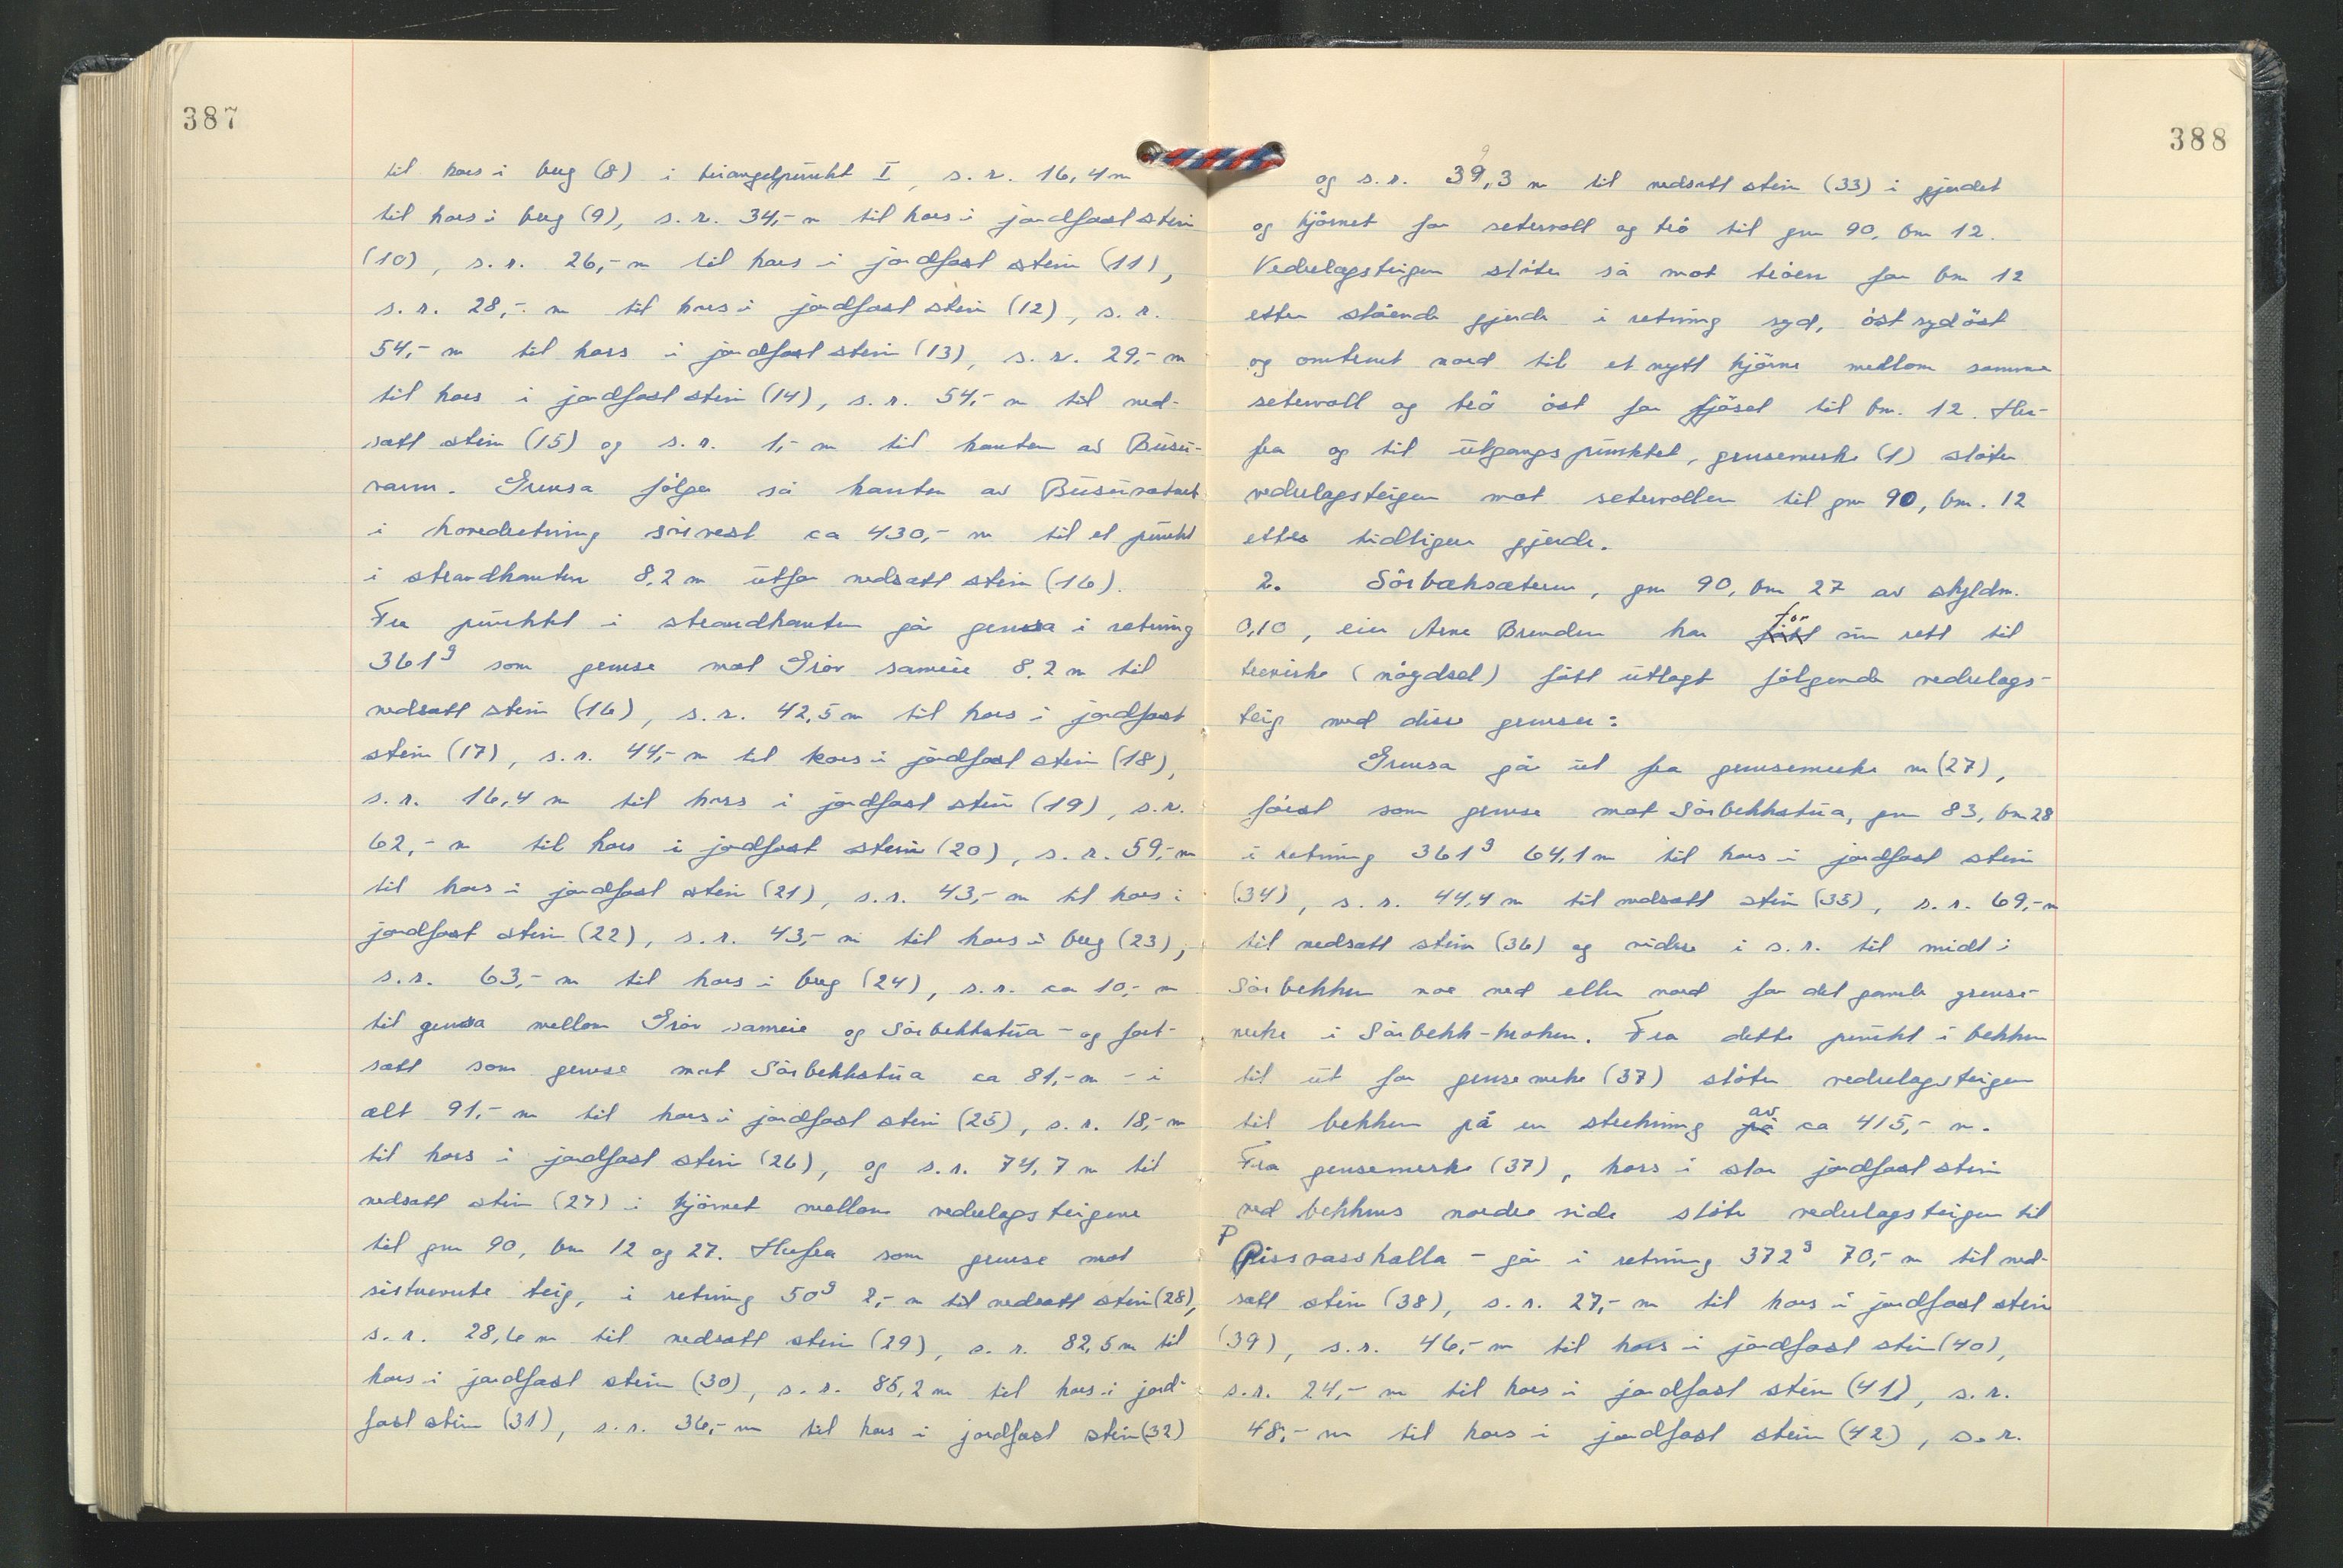 387
til kors i berg (8) i triangelpunkt I, s.r. 16,4 m
til kors i berg (9), s.r. 34,- m til kors i jordfast stein
(10), s.r. 26,- m til kors i jordfast stein (11),
s.r. 28,- m til kors i jordfast stein (12), s.r.
54,- m til kors i jordfast stein (13), s.r. 29,- m
til kors i jordfast stein (14), s.r. 54,- m til ned-
satt stein (15) og s.r. 1,- m til kanten av Busu-
vatnn. Grensa følger så kanten av Busuvatnet
i hovedretning sörvest ca 430,- m til et punkt
i strandkanten 8,2 m utfor nedsatt stein (16).
Fra punktet i strandkanten går grensa i retning
361g som grense mot Griov sameie 8,2 m til
nedsatt stein (16), s.r. 42,5 m til kors i jordfast
stein (17), s.r. 44,- m til kors i jordfast stein (18),
s.r. 16,4 m til kors i jordfast stein (19), s.r.
62,- m til kors i jordfast stein (20), s.r. 59,- m
til kors i jordfast stein (21), s.r. 43,- m til kors i
jordfast stein (22), s.r. 43,- m til kors i berg (23),
s.r. 63,- m til kors i berg (24), s.r. ca 10,- m
til grensa mellom Griov sameie og Sörbekkstua - og fort-
satt som grense mot Sörbekkstua ca 81,- m - i
alt 91,- m til kors i jordfast stein (25), s.r. 18,- m
til kors i jordfast stein (26), og s.r. 74,7 m til
nedsatt stein (27) i hjörnet mellom vedulagsteigene
til gnr 90, bnr 12 og 27. Herfra som grense mot
sistnevnte teig, i retning 50g 2,- m til nedsatt stein (28),
s.r. 28,6 m til nedsatt stein (29), s.r. 82,5 m til
kors i jordfast stein (30), s.r. 85,2 m til kors i jord-
fast stein (31), s.r. 36,- m til kors i jordfast stein (32)
388
og s.r. 39,3 m til nedsatt stein (33) i gjerdet
og hjörnet for setervoll og trö til gnr 90, bnr 12.
Vedrelagsteigen stöter så mot tröen for bnr 12
etter stående gjerde i retning syd, öst sydöst
og omtrent nord til et nytt hjörne mellom samme
setervoll og trö öst for fjöset til bnr. 12. Her-
fra og til utgangspunktet, grensemerke (1) stöter
vedrelagsteigen mot setervollen til gnr 90, bnr. 12
etter tidligere gjerde.
2. Sörbæksæteren, gnr 90, bnr 27 av skyldm.
0,10, eier Arne Brenden har fått for sin rett til
trevirke (nögdsel) fått utlagt fölgende vedrelags-
teig med disse grenser:
Grensa går ut fra grensemerke nr (27),
först som grense mot Sörbekkstua, gnr 83, bnr 28
i retning 361g 64,1 m til kors i jordfast stein
(34), s.r. 44,4 m til nedsatt stein (35), s.r. 69,- m
til nedsatt stein (36) og videre i s.r. til midt i
Sörbekken noe ned eller nord for det gamle grense-
merke i Sörbekk-kroken. Fra dette punkt i bekken
til ut for grensemerke (37) stöter vedrelagsteigen
til bekken på en strekning på av ca 415,- m.
Fra grensemerke (37), kors i stor jordfast stein
ved bekkens nordre side stöter vedrelagsteigen til
Pissvasskalla - går i retning 372g 70,- m til ned-
satt stein (38), s.r. 27,- m til kors i jordfast stein
(39), s.r. 46,- m til kors i jordfast stein (40),
s.r. 24,- m til kors i jordfast stein (41), s.r.
48,- m til kors i jordfast stein (42), s.r.